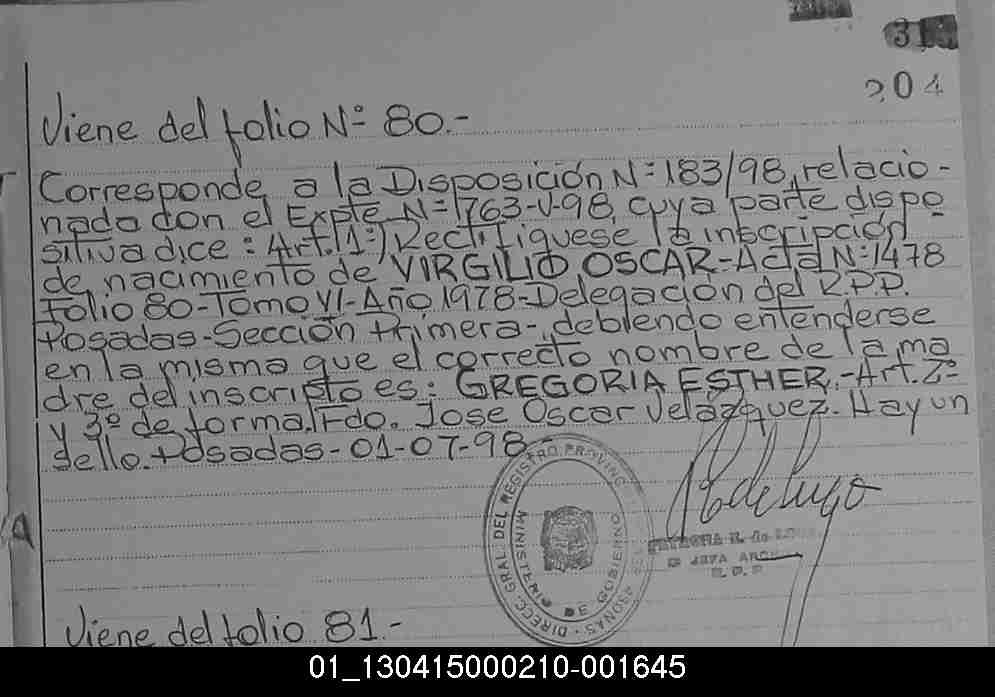 31
204
Viene del folio Nº 80.-
Corresponde a la Disposición Nº 183/98, relacio-
nada con el Expte Nº 1763-V-98, cuya parte dispo
sitiva dice: Art. 1º) Rectifíquese la inscripción
de nacimiento de VIRGILIO OSCAR-Acta Nº 1478
Folio 80-Tomo VI-Año 1978-Delegación del R.P.P.
Posadas-Sección Primera-, debiendo entenderse
en la misma que el correcto nombre de la ma
dre del inscripto es: GREGORIA ESTHER.-Art. 2º
y 3º de forma. Fdo. Jose Oscar Velazquez. Hay un
sello. Posadas-01-07-98-
DIRECC. GRAL. DEL REGISTRO PROVINC
MINISTERIO DE GOBIERNO
JEFA ARCH
R.P.P
Viene del folio 81.-
01_130415000210-001645